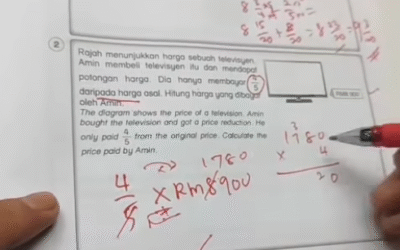 2
Rajah menunjukkan harga sebuah televisyen.
Amin membeli televisyen itu dan mendapat
potongan harga. Dia hanya membayar 4/5
daripada harga asal. Hitung harga yang dibayar
oleh Amin.
The diagram shows the price of a television. Amin
bought the television and got a price reduction. He
only paid 4/5 from the original price. Calculate the
price paid by Amin.
1780
4/5 × RM8900
3
1780
× 4
20